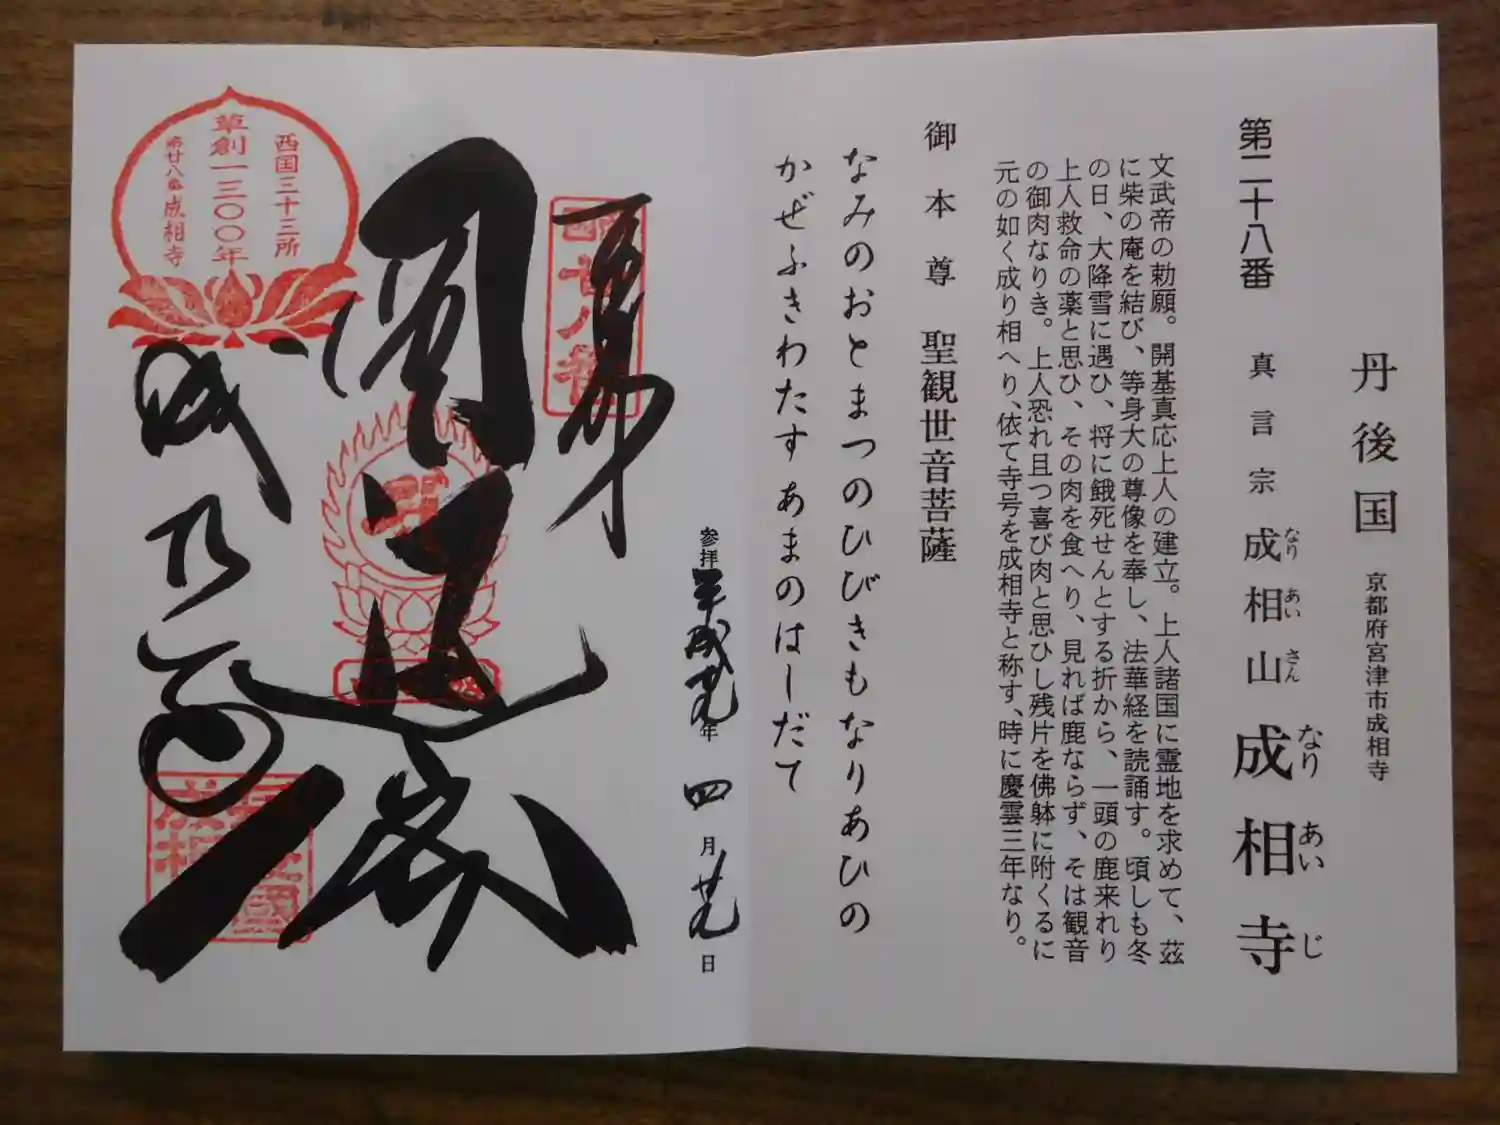 丹後国 京都府宮津市成相寺
第二十八番 真言宗 成相山 成相寺
なり あい さん なり あい じ
文武帝の勅願。開基真応上人の建立。上人諸国に霊地を求めて、茲
に柴の庵を結び、等身大の尊像を奉し、法華経を読誦す。頃しも冬
の日、大降雪に遇ひ、将に餓死せんとする折から、一頭の鹿来れり
上人救命の薬と思ひ、その肉を食へり、見れば鹿ならず、そは観音
の御肉なりき。上人恐れ且つ喜び肉と思ひし残片を佛躰に附くるに
元の如く成り相へり、依て寺号を成相寺と称す、時に慶雲三年なり。
御本尊 聖観世音菩薩
なみのおとまつのひびきもなりあひの
かぜふきわたすあまのはしだて
参拝平成廿九年 四月廿九日
奉拝
西国廿八番
成相寺
西国三十三所
草創一三〇〇年
第廿八番 成相寺